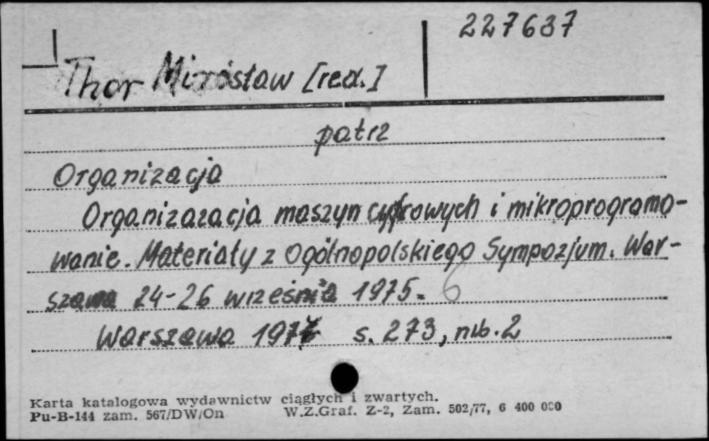 227637
Thor Mirosław [red.]
patrz
Organizacja
Organizazacja maszyn cyfrowych i mikroprogramo-
wanie. Materiały z Ogólnopolskiego Sympozjum. War-
szawa 24-26 września 1975. 6
Warszawa 1977 s. 273, nlb. 2
Karta katalogowa wydawnictw ciągłych i zwartych.
Pu-B-144 zam. 567/DW/On W.Z.Graf. Z-2, Zam. 502/77, 6 400 000